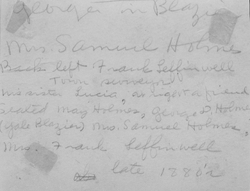 George in Blazer
Mrs Samuel Holmes
Back left Frank Leffinwell
Tom
his sister Lucia, at right a friend
seated May Holmes, George P. Holmes
(Yale Blazer) Mrs. Samuel Holmes,
Mrs. Frank Leffinwell
late 1880's